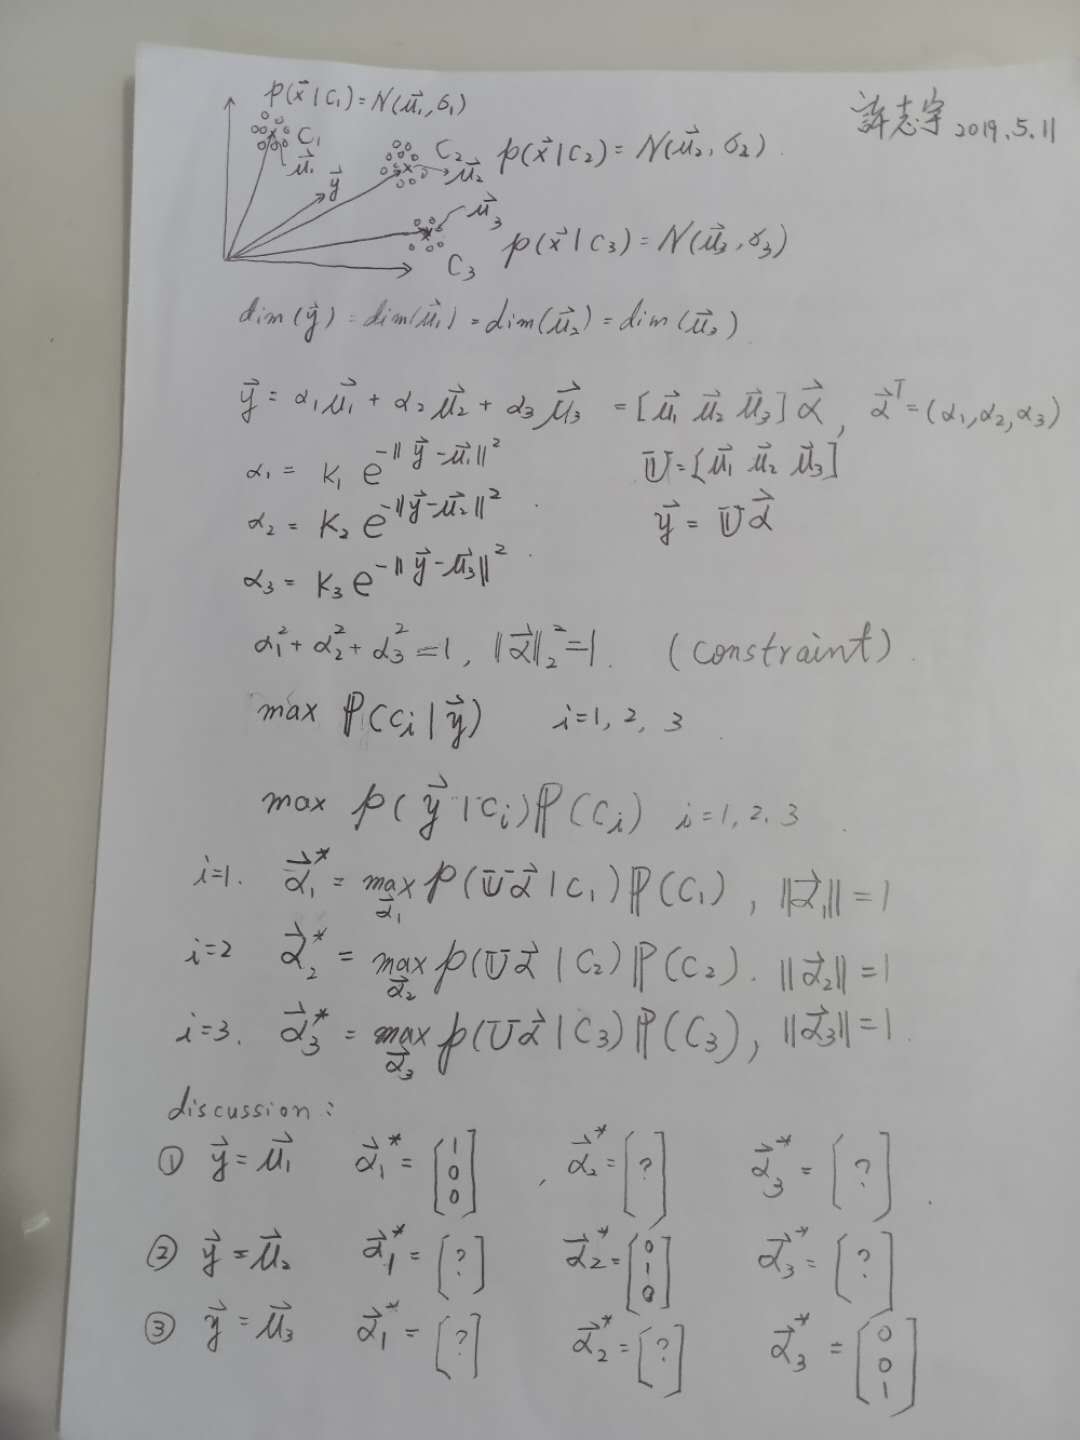 p(x⃗|C₁)=N(μ⃗₁,σ₁)
許志宇 2019.5.11
C₁
μ⃗₁
y⃗
C₂
μ⃗₂
p(x⃗|C₂)=N(μ⃗₂,σ₂)
μ⃗₃
C₃
p(x⃗|C₃)=N(μ⃗₃,σ₃)
dim(y⃗)=dim(μ⃗₁)=dim(μ⃗₂)=dim(μ⃗₃)
y⃗=α₁μ⃗₁+α₂μ⃗₂+α₃μ⃗₃ =[μ⃗₁ μ⃗₂ μ⃗₃]α⃗, α⃗ᵀ=(α₁,α₂,α₃)
α₁= K₁ e^{-‖y⃗-μ⃗₁‖²} U=[μ⃗₁ μ⃗₂ μ⃗₃]
α₂= K₂ e^{-‖y⃗-μ⃗₂‖²} y⃗=Uα⃗
α₃= K₃ e^{-‖y⃗-μ⃗₃‖²}
α₁²+α₂²+α₃²=1, ‖α⃗‖₂²=1. (constraint)
max ℙ(Cᵢ|y⃗) i=1, 2, 3
max p(y⃗|Cᵢ)ℙ(Cᵢ) i=1, 2, 3
i=1. α⃗₁*= max_{α⃗₁} p(Uα⃗|C₁)ℙ(C₁), ‖α⃗₁‖=1
i=2 α⃗₂*= max_{α⃗₂} p(Uα⃗|C₂)ℙ(C₂). ‖α⃗₂‖=1
i=3. α⃗₃*= max_{α⃗₃} p(Uα⃗|C₃)ℙ(C₃), ‖α⃗₃‖=1
discussion:
① y⃗=μ⃗₁ α⃗₁*=[1 0 0], α⃗₂*=[?] α⃗₃*=[?]
② y⃗=μ⃗₂ α⃗₁*=[?] α⃗₂*=[0 1 0] α⃗₃*=[?]
③ y⃗=μ⃗₃ α⃗₁*=[?] α⃗₂*=[?] α⃗₃*=[0 0 1]